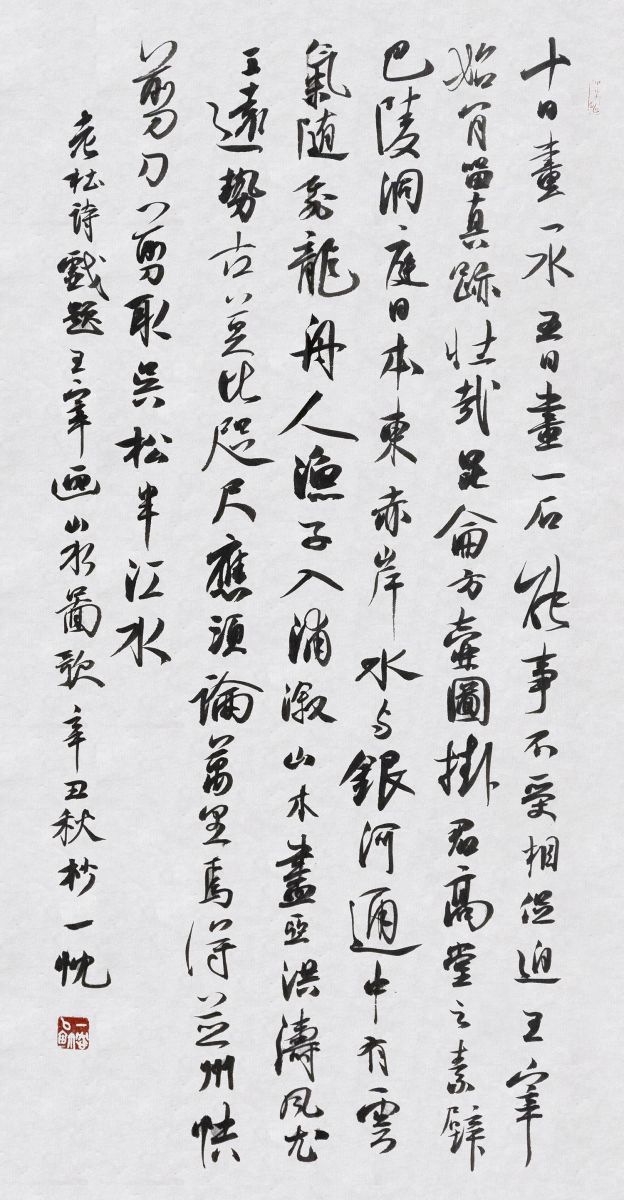 十日畫一水五日畫一石能事不受相促迫王宰
始肎留真跡壯哉昆侖方壺圖掛君高堂之素壁
巴陵洞庭日本東赤岸水与銀河通中有雲
氣随飛龍舟人漁子入浦溆山木盡亞洪濤風尤
工遠勢古莫比咫尺應須論萬里焉得並州快
剪刀剪取吳松半江水
老杜詩戲題王宰画山水圖歌辛丑秋杪一忱